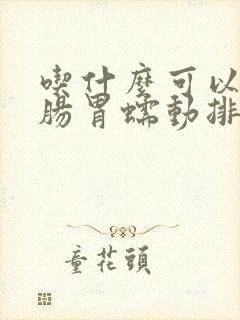 喫什麼可以
腸胃蠕動排
童花頭